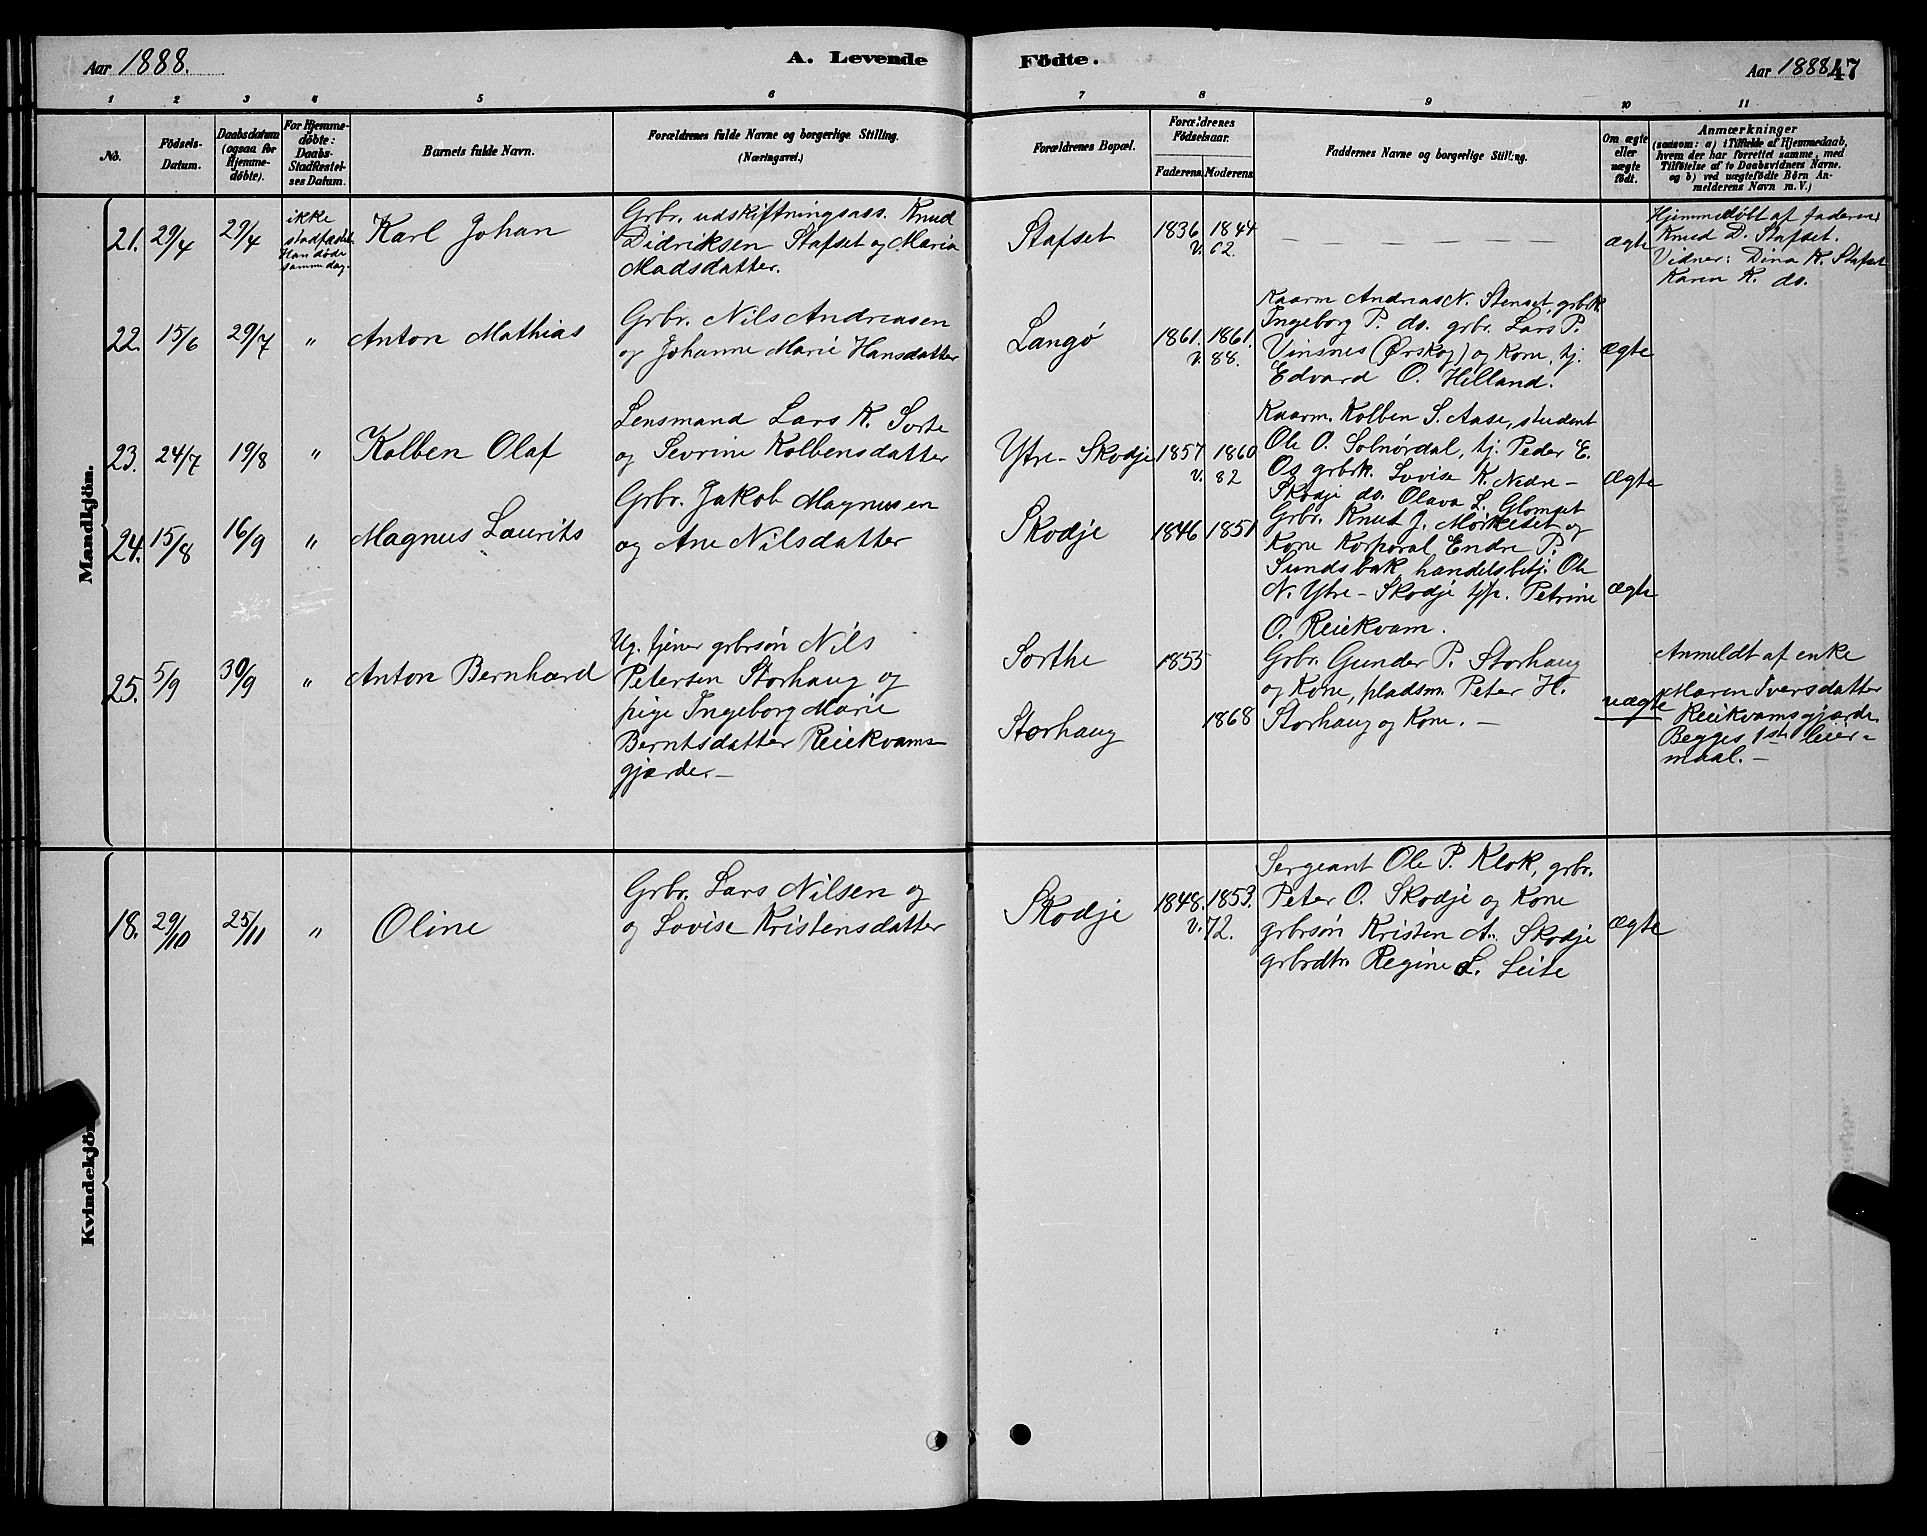 Aar 1888.
A. Levende Födte.
Aar 1888. 47
1 2 3 4 5 6 7 8 9 10 11
No.
Födsels-Datum.
Daabsdatum (ogsaa for Hjemme-döbte).
For Hjemme-döbte: Daabs-Stadfæstel-ses Datum.
Barnets fulde Navn.
Forældrenes fulde Navne og borgerlige Stilling.
(Næringsvei.)
Forældrenes Bopæl.
Forældrenes Födselsaar.
Faderens. Moderens.
Faddernes Navne og borgerlige Stilling.
Om ægte eller uægte födt.
Anmærkninger
(saasom: a) i Tilfælde af Hjemmedaab,
hvem der har forrettet samme, med
Tilföielse af to Daabsvidners Navne.
og b) ved uægtefödte Börn An-
melderens Navn m.V.)
Mandkjön.
21. 29/4 29/4
ikke
stadfæstet
Han døde
samme dag.
Karl Johan
Grbr. udskiftningsass. Knud
Didriksen Stafset og Maria
Madsdatter.
Stafset
1836 1844
v. 62.
— — — — — — — —
ægte
Hjemmedøbt af faderen
Knud D. Stafset.
Vidner: Dina K. Stafset
Karen K. do.
22. 15/6 29/7 "
Anton Mathias
Grbr. Nils Andreasen
og Johanne Marie Hansdatter
Langø
1861. 1861.
v. 88.
Kaarm Andreas N. Stenset, grbrk.
Ingeborg P. do. grbr. Lars P.
Vinsnes (Ørskog) og Kone, tj.
Edvard O. Helland.
Ægte
23. 24/7 19/8 "
Kolben Olaf
Lensmand Lars K. Sorte
og Sevrine Kolbensdatter
Ytre-Skodje
1857 1860
v. 82
Kaarm. Kolben S. Aase, student
Ole O. Solnørdal, tj. Peder E.
Os grbrk. Lovise K. Nedre-
Skodje do. Olava L. Glomset
Ægte
24. 15/8 16/9 "
Magnus Laurits
Grbr. Jakob Magnusen
og Ane Nilsdatter
Skodje
1846 1851
Grbr. Knut J. Mørkeset og
Kone Korporal Endre P.
Sundsbak, handelsbetj. Ole
N. Ytre-Skodje tjp. Petrine
O. Reiekvam.
Ægte
25. 5/9 30/9 "
Anton Bernhard
Ug. tjener grbrsøn Nils
Petersen Storhaug og
pige Ingeborg Marie
Berntsdatter Reiekvams-
gjærde.—
Sorthe
Storhaug
1855
1868
Grbr. Gunder P. Storhaug
og Kone, pladsm. Peter H.
Storhaug og Kone. —
uægte
Anmeldt af enke
Maren Iversdatter
Reiekvamsgjærde.
Begges 1ste leier-
maal.—
Kvindekjön.
18. 29/10 25/11 "
Oline
Grbr. Lars Nilsen og
og Lovise Kristensdatter
Skodje
1848. 1853.
v. 72.
Sergeant Ole P. Klok, grbr.
Peter O. Skodje og Kone
grbrsøn Kristen A. Skodje
grbrdtr. Regine L. Leite
Ægte